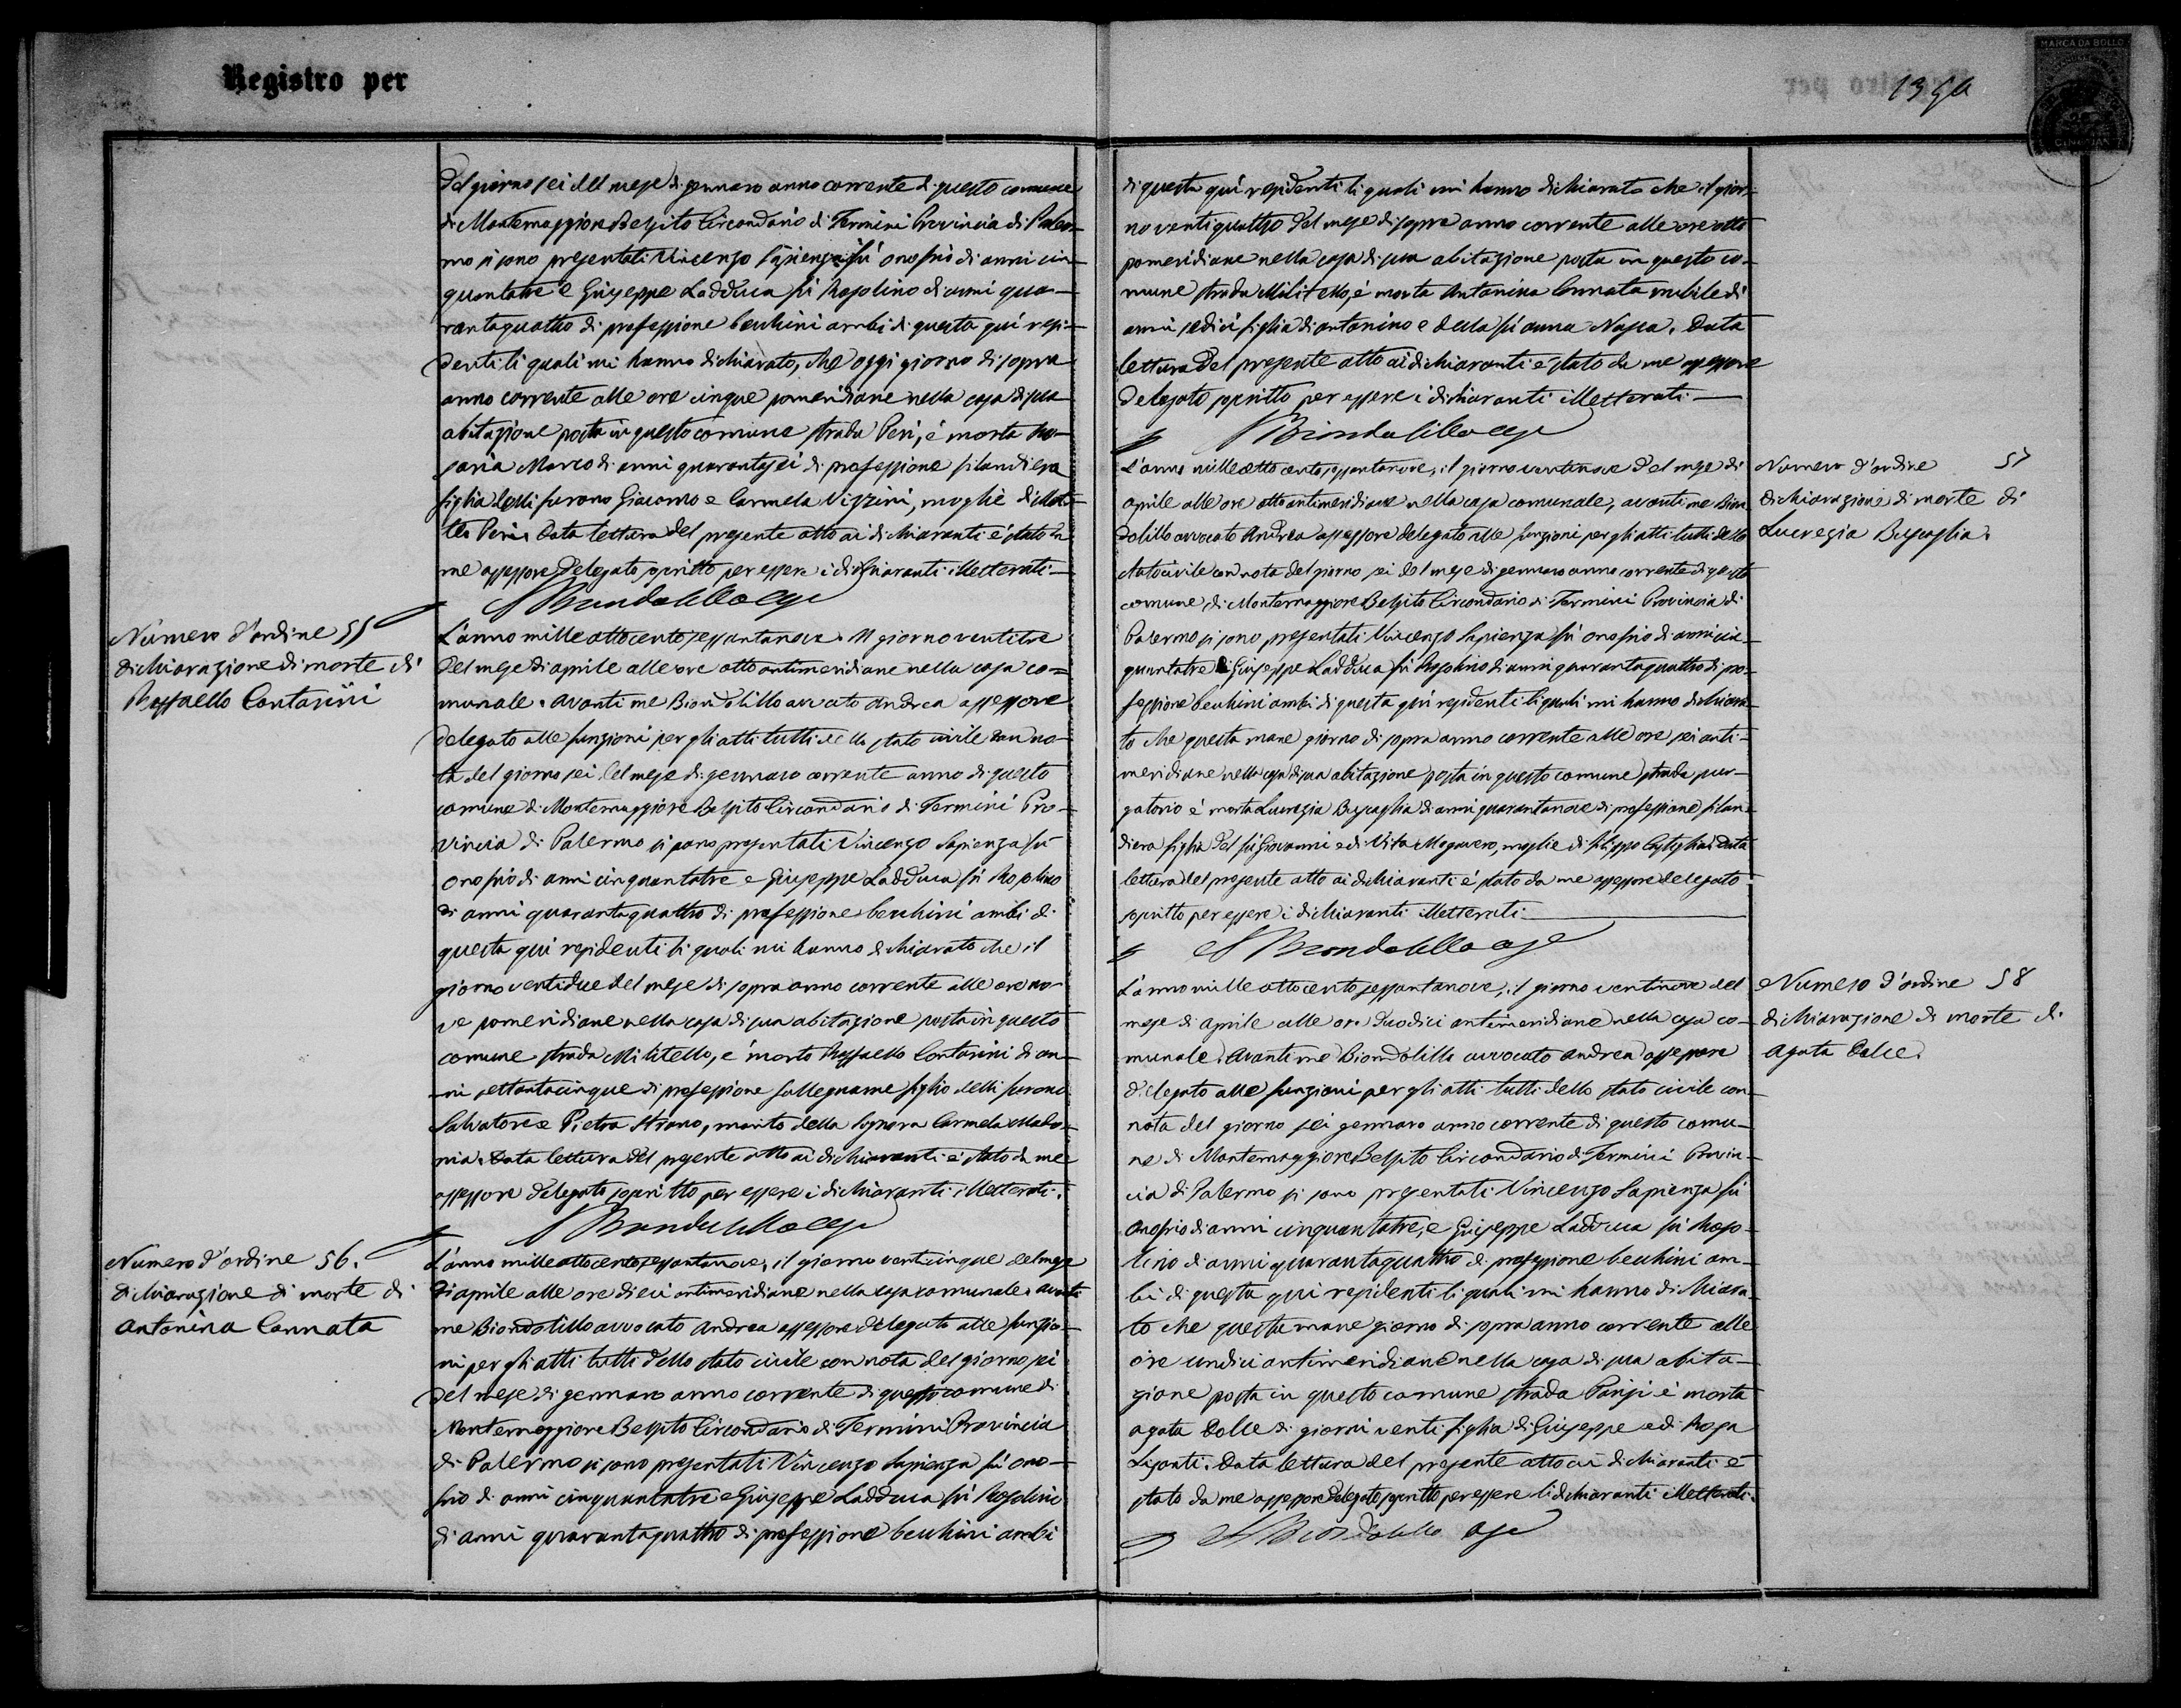 Registro per
del giorno sei del mese di gennaro anno corrente di questo comune
di Montemaggiore Belsito Circondario di Termini Provincia di Paler-
mo si sono presentati Vincenzo Sapienza fù onofrio di anni cin-
quantatre e Giuseppe Ladduca fù Rosolino di anni qua-
rantaquattro di professione becchini ambi di questa quì resi-
denti li quali mi hanno dichiarato, che oggi giorno di sopra
anno corrente alle ore cinque pomeridiane nella casa di sua
abitazione posta in questo comune strada Peri, è morta Ro-
saria Marco di anni quarantasei di professione filandiera
figlia delli furono Giacomo e Carmela Vizzini, moglie di Mat-
teo Peri. Data lettura del presente atto ai dichiaranti è stato da
me assessore delegato scritto per essere i dichiaranti illetterati-
A Biondolillo asse
Numero d'ordine 55
dichiarazione di morte di
Raffaello Contarini
L'anno mille ottocento sessantanove. Il giorno ventitre
del mese di aprile alle ore otto antimeridiane nella casa co-
munale. avanti me Biondolillo avvocato Andrea assessore
delegato alle funzioni per gli atti tutti dello stato civile con no-
ta del giorno sei del mese di gennaro corrente anno di questo
comune di Montemaggiore Belsito Circondario di Termini Pro-
vincia di Palermo si sono presentati Vincenzo Sapienza fù
onofrio di anni cinquantatre e Giuseppe Ladduca fù Rosolino
di anni quarantaquattro di professione becchini ambi di
questa quì residenti li quali mi hanno dichiarato che il
giorno ventidue del mese di sopra anno corrente alle ore no-
ve pomeridiane nella casa di sua abitazione posta in questo
comune strada Militello, è morto Raffaello Contarini di an-
ni settantacinque di professione fallegname figlio delli furono
Salvatore e Pietra Strano, marito della Signora Carmela
nia. Data lettura del presente atto ai dichiaranti è stato da me
assessore delegato scritto per essere i dichiaranti illetterati.
A Biondolillo asse
Numero d'ordine 56.
dichiarazione di morte di
Antonina Cannata
L'anno mille ottocento sessantanove, il giorno venticinque del mese
di aprile alle ore dieci antimeridiane nella casa comunale. avanti
me Biondolillo avvocato Andrea assessore delegato alle funzio-
ni per gli atti tutti dello stato civile con nota del giorno sei
del mese di gennaro anno corrente di questo comune di
Montemaggiore Belsito Circondario di Termini Provincia
di Palermo si sono presentati Vincenzo Sapienza fù ono-
frio di anni cinquantatre e Giuseppe Ladduca fù Rosolino
di anni quarantaquattro di professione becchini ambi
MARCA DA BOLLO
di questa quì residenti li quali mi hanno dichiarato che il gior-
no ventiquattro del mese di sopra anno corrente alle ore otto
pomeridiane nella casa di sua abitazione posta in questo co-
mune strada Militello, è morta Antonina Cannata nubile di
anni sedici figlia di antonino e della fù anna Nasca. Data
lettura del presente atto ai dichiaranti è stato da me assessore
delegato scritto per essere i dichiaranti illetterati-
A Biondolillo asse
Numero d'ordine 57
dichiarazione di morte di
Lucrezia Buscaglia.
L'anno mille ottocento sessantanove, il giorno ventinove del mese di
aprile alle ore otto antimeridiane nella casa comunale, avanti me Bion-
dolillo avvocato Andrea assessore delegato alle funzioni per gli atti tutti dello
stato civile con nota del giorno sei del mese di gennaro anno corrente di questo
comune di Montemaggiore Belsito Circondario di Termini Provincia di
Palermo si sono presentati Vincenzo Sapienza fù onofrio di anni cin-
quantatre e Giuseppe Ladduca fù Rosolino di anni quarantaquattro di pro-
fessione becchini ambi di questa quì residenti li quali mi hanno dichiara-
to che questa mane giorno di sopra anno corrente alle ore sei anti-
meridiane nella casa di sua abitazione posta in questo comune strada pur-
gatorio è morta Lucrezia Buscaglia di anni quarantanove di professione filan-
diera figlia del fù Giovanni e di Vita Mogavero, moglie di Filippo Castiglia. Data
lettura del presente atto ai dichiaranti è stato da me assessore delegato
scritto per essere i dichiaranti illetterati
A Biondolillo asse
Numero d'ordine 58
dichiarazione di morte di
Agata Dolce.
L'anno mille ottocento sessantanove, il giorno ventinove del
mese di aprile alle ore duodici antimeridiane nella casa co-
munale. Avanti me Biondolillo avvocato Andrea assessore
delegato alle funzioni per gli atti tutti dello stato civile con
nota del giorno sei gennaro anno corrente di questo comu-
ne di Montemaggiore Belsito Circondario di Termini Provin-
cia di Palermo si sono presentati Vincenzo Sapienza fù
Onofrio di anni cinquantatre, e Giuseppe Ladduca fù Roso-
lino di anni quarantaquattro di professione becchini am-
bi di questa quì residenti li quali mi hanno dichiara-
to che questa mane giorno di sopra anno corrente alle
ore undici antimeridiane nella casa di sua abita-
zione posta in questo comune strada Parisi è morta
agata Dolce di giorni venti figlia di Giuseppe e di Rosa
Lisanti. Data lettura del presente atto ai dichiaranti è
stato da me assessore delegato scritto per essere li dichiaranti illetterati.
A Biondolillo asse